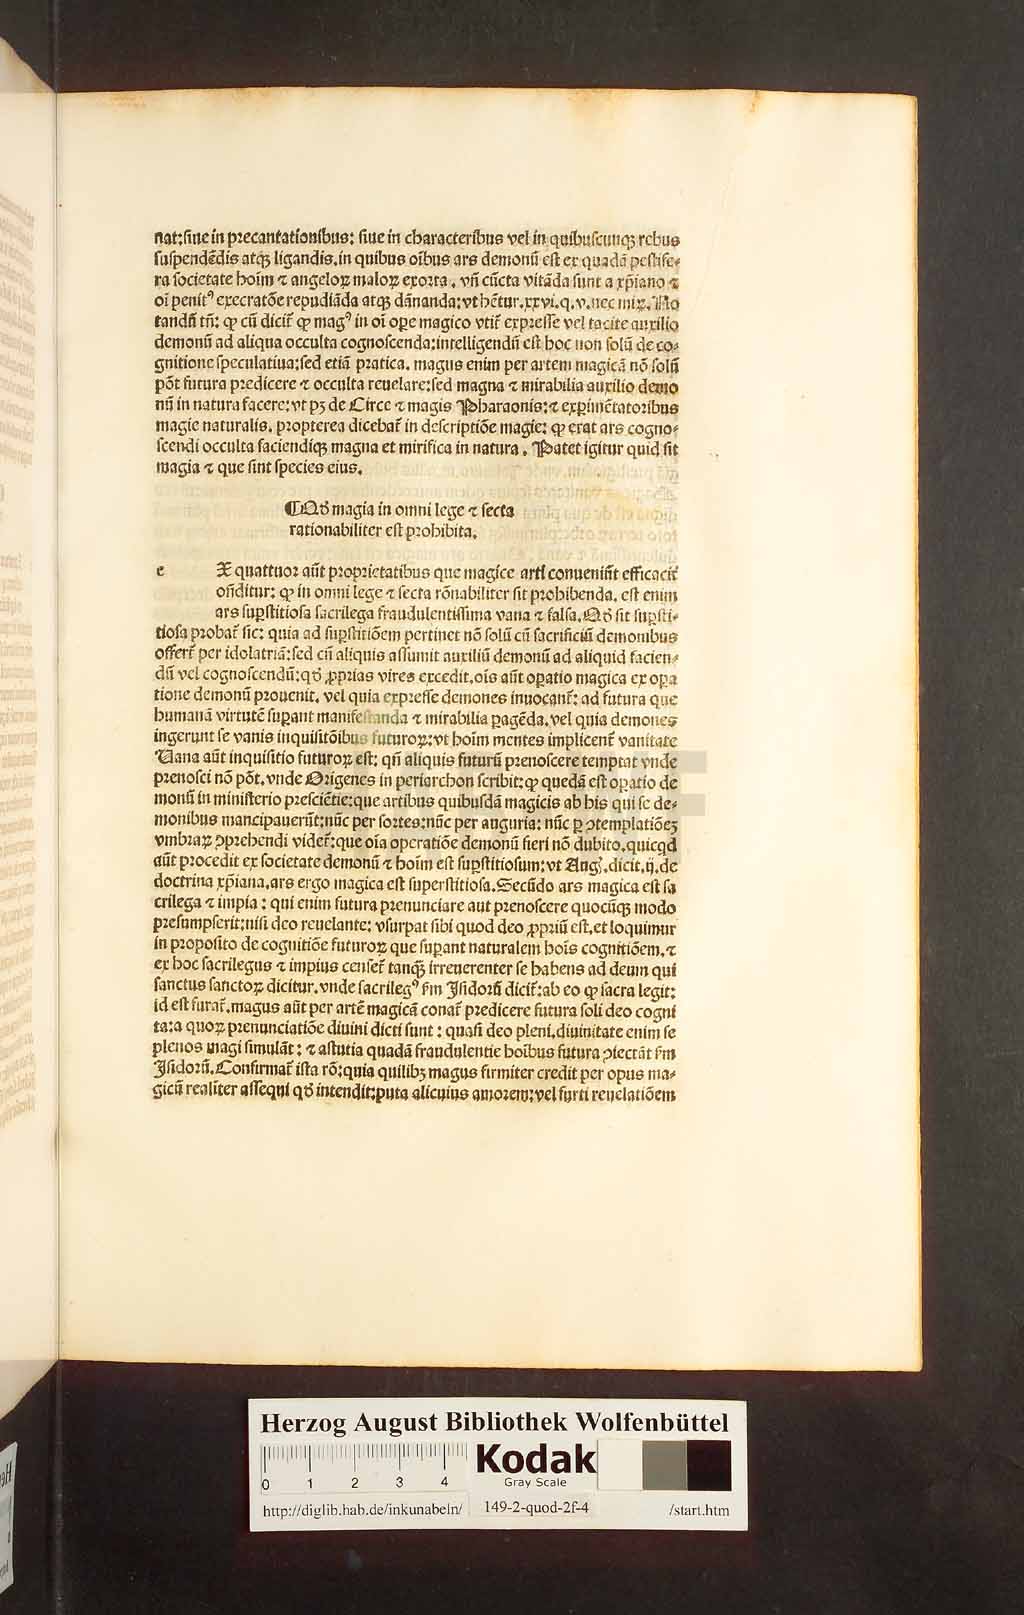 nat:siue in precantationibus: siue in characteribus vel in quibuscunqꝫ rebus
suspendẽdis atqꝫ ligandis.in quibus oĩbus ars demonũ est ex quadã pestife⸗
ra societate hoĩm ⁊ angeloꝝ maloꝝ exorta. vñ cũcta vitãda sunt a xp̃iano ⁊
oĩ penitꝰ execratõe repudiãda atqꝫ dãnanda:vt hẽtur.xxvi.q.v.nec mirꝫ. No
tandũ tñ: ꝙ cũ dicit̃ ꝙ magꝰ in oĩ oꝑe magico vtit̃ expresse vel tacite auxilio
demonũ ad aliqua occulta cognoscenda:intelligendũ est hoc non solũ de co⸗
gnitione speculatiua:sed etiã pratica. magus enim per artem magicã nõ solũ
põt futura predicere ⁊ occulta reuelare:sed magna ⁊ mirabilia auxilio demo
nũ in natura facere:vt pꝫ de Circe ⁊ magis Pharaonis:⁊ exꝑimẽtatoribus
magie naturalis. propterea dicebat̃ in descriptiõe magie: ꝙ erat ars cogno⸗
scendi occulta faciendiqꝫ magna et mirifica in natura. Patet igitur quid sit
magia ⁊ que sint species eius.
¶Qď magia in omni lege ⁊ secta
rationabiliter est prohibita.
e X quattuor aũt proprietatibus que magice arti conueniũt efficacit̃
oñditur: ꝙ in omni lege ⁊ secta rõnabiliter sit prohibenda. est enim
ars suꝑstitiosa sacrilega fraudulentissima vana ⁊ falsa. Qď sit suꝑsti⸗
tiosa probat̃ sic: quia ad suꝑstitiõem pertinet nõ solũ cũ sacrificiũ demonibus
offert̃ per idolatriã:sed cũ aliquis assumit auxiliũ demonũ ad aliquid facien⸗
dũ vel cognoscendũ:qď ꝓprias vires excedit.oĩs aũt oꝑatio magica ex oꝑa
tione demonũ prouenit. vel quia expresse demones inuocant̃: ad futura que
humanã virtutẽ suꝑant manifestanda ⁊ mirabilia ꝑagẽda.vel quia demones
ingerunt se vanis inquisitõibus futuroꝝ:vt hoĩm mentes implicent̃ vanitate
Uana aũt inquisitio futuroꝝ est: qñ aliquis futurũ prenoscere temptat vnde
prenosci nõ põt.vnde Origenes in periarchon scribit:ꝙ quedã est oꝑatio de
monũ in ministerio presciẽtie:que artibus quibusdã magicis ab his qui se de⸗
monibus mancipauerũt:nũc per sortes:nũc per auguria: nũc ꝑ ꝯtemplatiõeꝫ
vmbraꝝ ꝯprehendi videt̃:que oĩa operatiõe demonũ fieri nõ dubito.quicqd
aũt procedit ex societate demonũ ⁊ hoĩm est suꝑstitiosum:vt Aug̃.dicit.ij.de
doctrina xp̃iana.ars ergo magica est superstitiosa.Secũdo ars magica est sa
crilega ⁊ impia: qui enim futura prenunciare aut prenoscere quocũqꝫ modo
presumpserit:nisi deo reuelante: vsurpat sibi quod deo ꝓpriũ est.et loquimur
in proposito de cognitiõe futuroꝝ que suꝑant naturalem hoĩs cognitiõem.⁊
ex hoc sacrilegus ⁊ impius censet̃ tanqꝫ irreuerenter se habens ad deum qui
sanctus sanctoꝝ dicitur.vnde sacrilegꝰ ẜm Isidorũ dicit̃:ab eo ꝙ sacra legit:
id est furat̃.magus aũt per artẽ magicã conat̃ predicere futura soli deo cogni
ta:a quoꝝ prenunciatiõe diuini dicti sunt: quasi deo pleni.diuinitate enim se
plenos magi simulãt: ⁊ astutia quadã fraudulentie hoĩbus futura ꝯiectãt ẜm
Isidorũ.Confirmat̃ ista rõ:quia quilibꝫ magus firmiter credit per opus ma⸗
gicũ realiter assequi qď intendit:puta alicuius amorem:vel furti reuelatiõem
Herzog August Bibliothek Wolfenbüttel
0 1 2 3 4
Kodak
Gray Scale
http://diglib.hab.de/inkunabeln/ 149-2-quod-2f-4 /start.htm